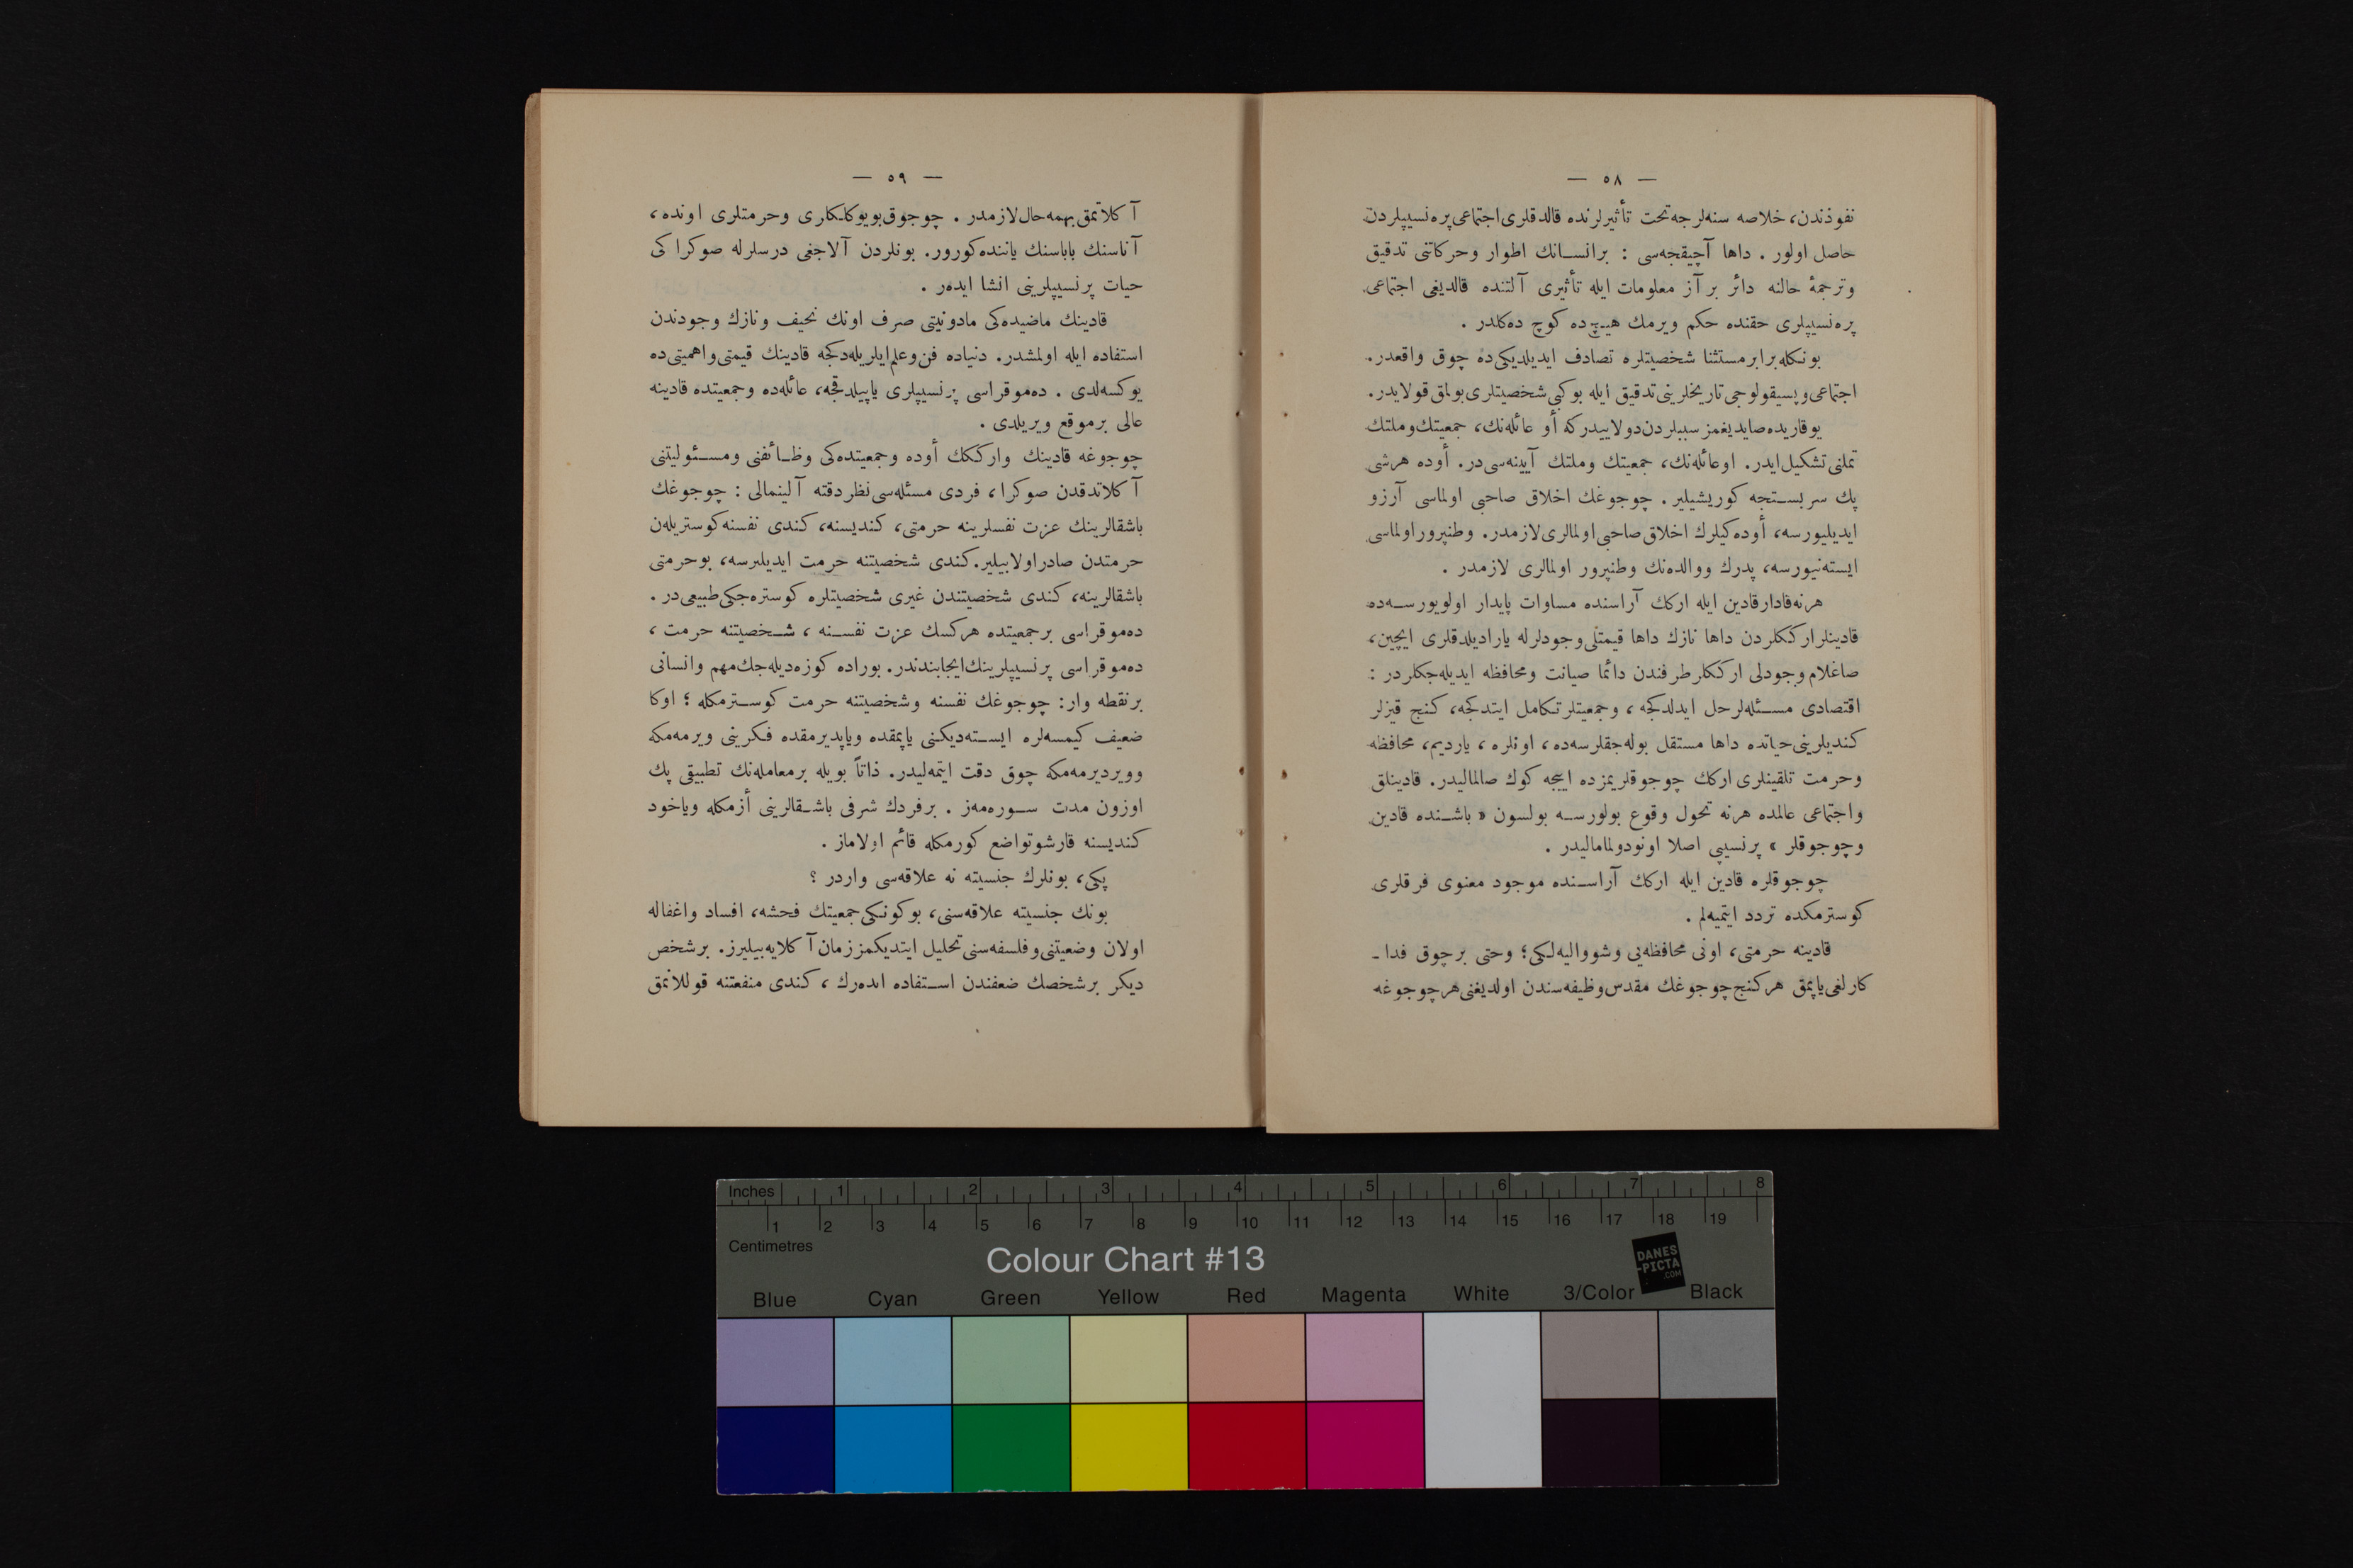 — ٥٨ —
نفوذندن، خلاصه سنه‌لرجه تحت تأثیرلرنده قالدقلری اجتماعی پره‌نسیپلردن
حاصل اولور . داها آچیقجه‌سی : برانسانك اطوار وحركاتنی تدقیق
وترجمهٔ حالنه دائر بر آز معلومات ایله تأثیری آلتنده قالدیغی اجتماعی
پره‌نسیپلری حقنده حكم ویرمك هیچ ده كوچ ده‌كلدر .
بونكله برابر مستثنا شخصیتلره تصادف ایدیلدیكی ده چوق واقعدر.
اجتماعی وپسیقولوجی تاریخلرینی تدقیق ایله بوكبی شخصیتلری بولمق قولایدر.
یوقاریده صایدیغمز سببلردن دولاییدركه أو عائله‌نك، جمعیتك وملتك
تملنی تشكیل ایدر. او عائله‌نك، جمعیتك وملتك آیینه‌سی در. أوده هرشی
پك سربستجه كوریشیلیر. چوجوغك اخلاق صاحبی اولماسی آرزو
ایدیلیورسه، أوده كیلرك اخلاق صاحبی اولمالری لازمدر. وطنپرور اولماسی
ایسته‌نیورسه، پدرك ووالده‌نك وطنپرور اولمالری لازمدر .
هرنه‌قادار قادین ایله اركك آراسنده مساوات پایدار اولویورسه‌ده
قادینلر ارككلردن داها نازك داها قیمتلی وجودلرله یارادیلدقلری ایچین،
صاغلام وجودلی ارككلر طرفندن دائما صیانت ومحافظه ایدیله‌جكلردر :
اقتصادی مسئله‌لر حل ایدلدكجه ، وجمعیتلر تكامل ایتدكجه، كنج قیزلر
كندیلرینی حیاتده داها مستقل بوله‌جقلرسه‌ده، اونلره ، یاردیم، محافظه
وحرمت تلقینلری اركك چوجوقلریمزده اییجه كوك صالمالیدر. قادینلق
واجتماعی عالمده هرنه تحول وقوع بولورسه بولسون « باشنده قادین
وچوجوقلر » پرنسیپی اصلا اونودولمامالیدر .
چوجوقلره قادین ایله اركك آراسنده موجود معنوی فرقلری
كوسترمكده تردد ایتمیه‌لم .
قادینه حرمتی، اونی محافظه‌یی وشووالیه‌لكی؛ وحتی برچوق فدا -
كارلغی یاپمق هركنج چوجوغك مقدس وظیفه‌سندن اولدیغنی هرچوجوغه
— ٥٩ —
آكلاتمق بهمه‌حال لازمدر . چوجوق بویوكلكلری وحرمتلری اونده،
آناسنك باباسنك یاننده كورور. بونلردن آلاجغی درسلرله صوكراكی
حیات پرنسیپلرینی انشا ایده‌ر .
قادینك ماضیده‌كی مادونیتی صرف اونك نحیف ونازك وجودندن
استفاده ایله اولمشدر. دنیاده فن وعلم ایلریله‌دكجه قادینك قیمتی واهمیتی ده
یوكسه‌لدی . ده‌موقراسی پرنسیپلری یاپیلدقجه، عائله‌ده وجمعیتده قادینه
عالی برموقع ویریلدی .
چوجوغه قادینك واركك أوده وجمعیتده‌كی وظائفنی ومسئولیتنی
آكلاتدقدن صوكرا، فردی مسئله‌سی نظردقته آلینمالی : چوجوغك
باشقالرینك عزت نفسلرینه حرمتی، كندیسنه، كندی نفسنه كوستریله‌ن
حرمتدن صادر اولابیلیر. كندی شخصیتنه حرمت ایدیلیرسه، بوحرمتی
باشقالرینه، كندی شخصیتندن غیری شخصیتلره كوستره‌جكی طبیعی در .
ده‌موقراسی برجمعیتده هركسك عزت نفسنه ، شخصیتنه حرمت ،
ده‌موقراسی پرنسیپلرینك ایجابندندر. بوراده كوزه‌دیله‌جك مهم وانسانی
برنقطه وار: چوجوغك نفسنه وشخصیتنه حرمت كوسترمكله ؛ اوكا
ضعیف كیمسه‌لره ایسته‌دیكنی یاپمقده ویاپدیرمقده فكرینی ویرمه‌مكه
وویردیرمه‌مكه چوق دقت ایتمه‌لیدر. ذاتاً بویله برمعامله‌نك تطبیقی پك
اوزون مدت سوره‌مه‌ز . برفردك شرفی باشقالرینی أزمكله ویاخود
كندیسنه قارشو تواضع كورمكله قائم اولاماز .
پكی، بونلرك جنسیته نه علاقه‌سی واردر ؟
بونك جنسیته علاقه‌سنی، بوكونكی جمعیتك فحشه، افساد واغفاله
اولان وضعیتنی وفلسفه‌سنی تحلیل ایتدیكمز زمان آكلایه‌بیلیرز. برشخص
دیكر برشخصك ضعفندن استفاده ایده‌رك ، كندی منفعتنه قوللانمق
Inches 1 2 3 4 5 6 7 8
1 2 3 4 5 6 7 8 9 10 11 12 13 14 15 16 17 18 19
Centimetres
Colour Chart #13
DANES
-PICTA
.COM
Blue Cyan Green Yellow Red Magenta White 3/Color Black